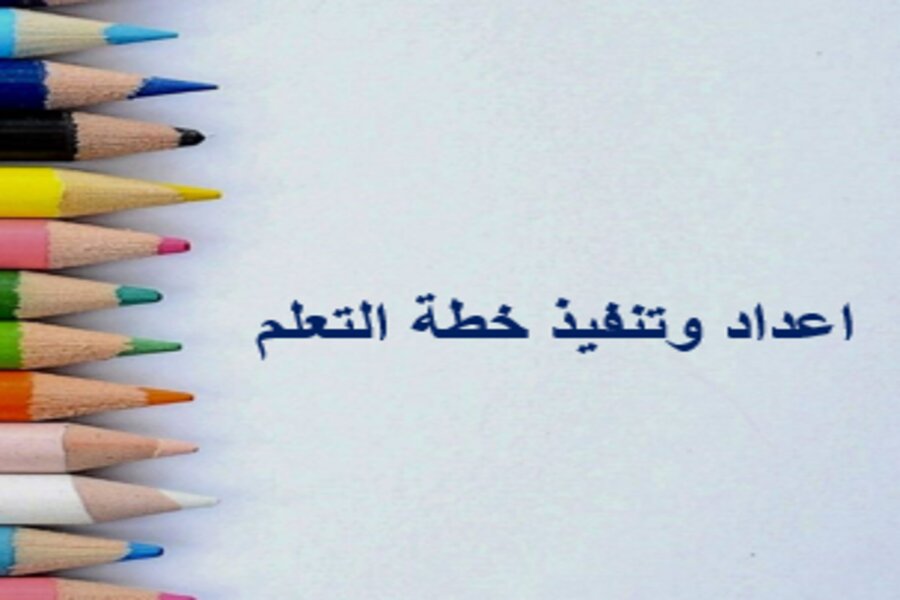 اعداد وتنفيذ خطة التعلم